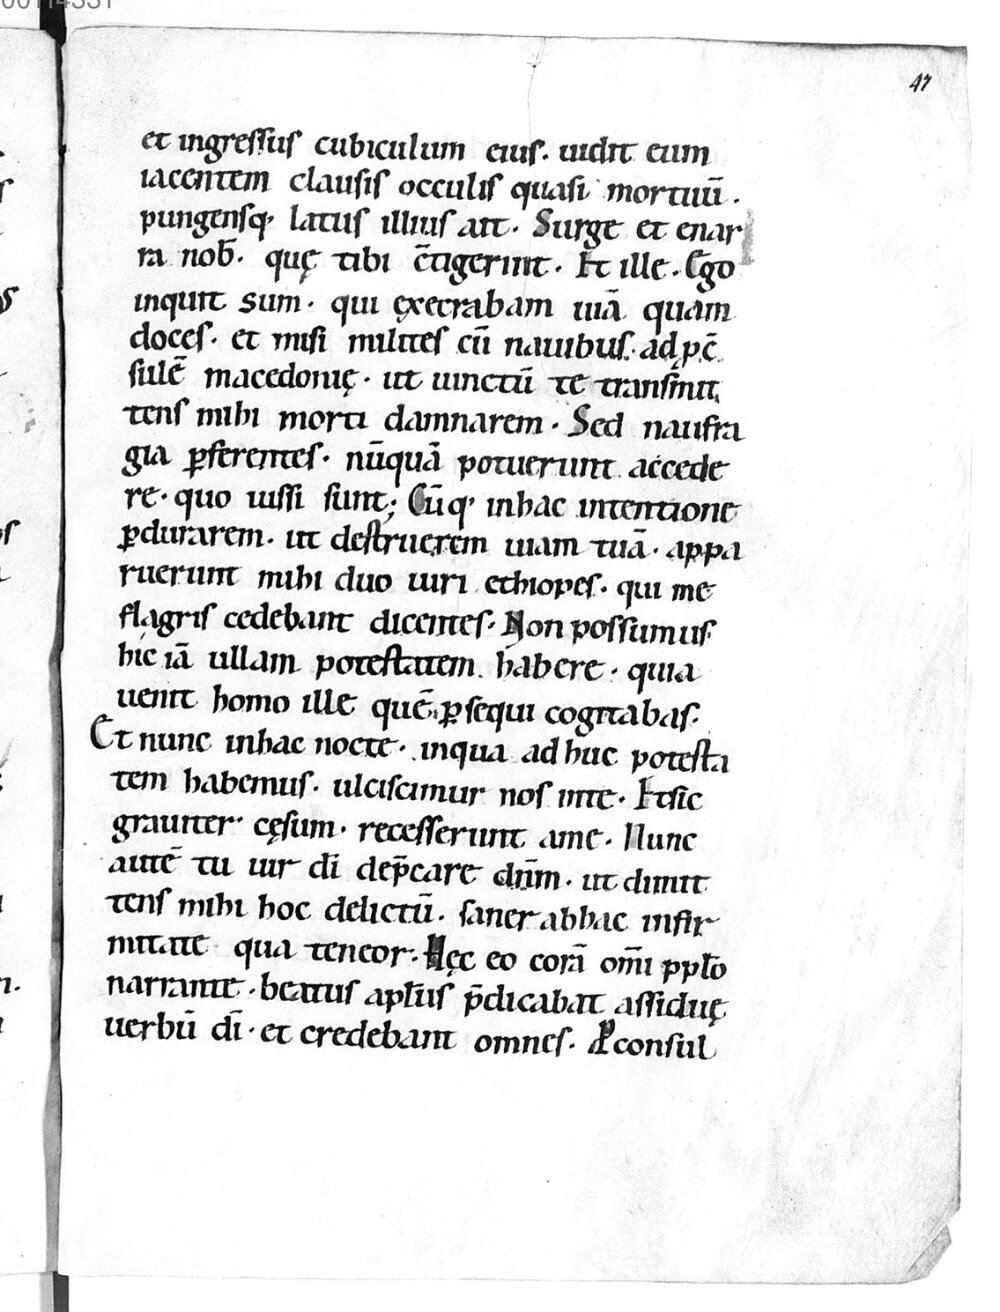 47
et ingressus cubiculum eius. uidit eum
iacentem clausis occulis quasi mortuū.
pungensq; latus illius ait. Surge et enar
ra nob̄. quę tibi c̄tigerint. Et ille. Ego
inquit sum. qui exęcrabam uiā quam
doces. et misi milites cū nauibus. ad pc̄
sulē macedonię. ut uinctū te transmit
tens mihi morti damnarem. Sed naufra
gia p̱ferentes. nūquā potuerunt accede
re. quo iussi sunt; Cūq; inhac intentione
p̱durarem. ut destruerem uiam tuā. appa
ruerunt mihi duo uiri ethiopes. qui me
flagris cedebant dicentes. Non possumus
hic iā ullam potestatem habere. quia
uenit homo ille quē p̱sequi cogitabas.
Et nunc inhac nocte. inqua adhuc potesta
tem habemus. ulciscimur nos inte. Et sic
grauiter cęsum. recesserunt ame. Nunc
autē tu uir dī dep̄care dnm̄. ut dimit
tens mihi hoc delictū. saner abhac infir
mitate qua teneor. Hęc eo corā om̄i pplo
narrante. beatus aplus p̄dicabat assiduę
uerbū dī. et credebant omnes. Pconsul